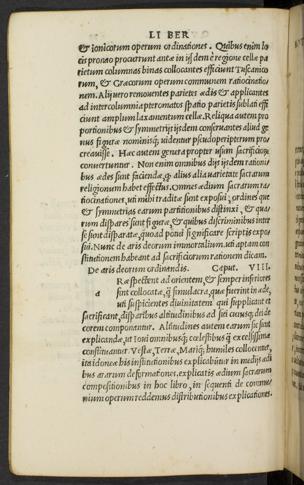 LIBER
& ionicorum operum ordinationes. Quibus enim lo
cis pronao procurrunt antæ in ijsdem è regione cellæ pa
rietum columnas binas collocantes efficiunt Tuscanico
rum, & Græcorum operum communem ratiocinatio
nem. Alij uero remouentes parietes ædis & applicantes
ad intercolumnia pteromatos spatio parietis sublati effi
ciunt amplum laxamentum cellæ. Reliqua autem pro
portionibus & symmetrijs ijsdem conseruantes aliud ge
nus figuræ nominisq; uidentur pseudoperipterum pro
creauisse. Hæc autem genera propter usum sacrificiorum
conuertuntur. Non enim omnibus dijs ijsdem rationi
bus ædes sunt faciendæ, q; alius alia uarietate sacrorum
religionum habet effectus. Omnes ædium sacrarum ra
tiocinationes, uti mihi traditæ sunt exposui, ordines que
& symmetrias earum partitionibus distinxi, & qua
rum dispares sunt figuræ, & quibus discriminibus inter
se sunt disparatæ, quoad potui significare scriptis expo
sui. Nunc de aris deorum immortalium, uti aptam con
stitutionem habeant ad sacrificiorum rationem dicam.
De aris deorum ordinandis. Caput. VIII.
a Ræ spectent ad orientem, & semper inferiores
sint collocatæ, q̃ simulacra, quæ fuerint in æde,
uti suspicientes diuinitatem qui supplicant et
sacrificant, disparibus altitudinibus ad sui cuiusq; dei de
corem componantur. Altitudines autem earum sic sunt
explicandæ, ut Ioui omnibusq; cœlestibus q̃ excelsissimæ
constituantur. Vestæ, Terræ, Mariq; humiles collocentur,
ita idoneæ his institutionibus explicabūtur in medijs ædi
bus ararum deformationes. explicatis ædium sacrarum
compositionibus in hoc libro, in sequenti de commu
nium operum reddemus distributionibus explicationes.